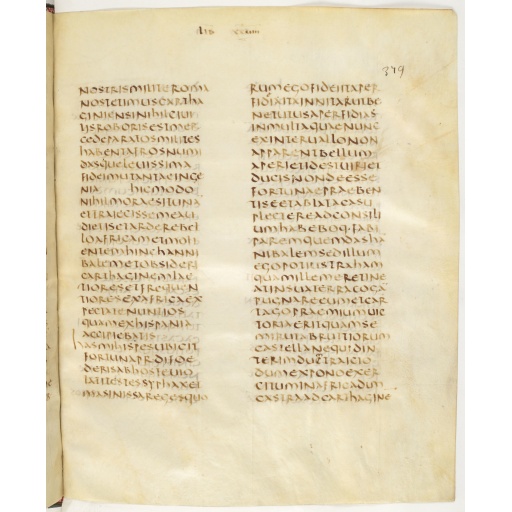 LIB XXVIII
379
NOSTRISMILITEROMA
NOSTETIMUSCARTHA
GINIENSINIHILCIUI
LISROBORISESTMER
CEDEPARATOSMILITES
HABENTAFROSNUMI
DASQUELEUISSIMA
FIDEIMUTANTAEINGE
NIA HICMODO
NIHILMORAESITUNA
ETTRAIECISSEMEAU
DIETISETARDEREBEL
LOAFRICAMETMOLI
ENTEMHINCHANNI
BALEMETOBSIDERI
CARTHAGINEMLAE
TIORESETFREQUEN
TIORESEXAFRICAEX
PECTATENUNTIOS
QUAMEXHISPANIA
ACCIPIEBATIS
HASMIHISPESUBICIT
FORTUNAPRDIFOE
DERISABHOSTEUIO
LATITESTESSYPHAXET
MASINISSAREGESQUO
RUMEGOFIDEIITAPER
FIDIAITAINNITARUTBE
NETUTUSAPERFIDIAS
INMULTAQUAENUNC
EXINTERUALLONON
APPARENTBELLUM
APERIETIDESTUIRIET
DUCISNONDEESSE
FORTUNAEPRAEBEN
TISEETABLATACASU
PLECTEREADCONSILI
UMHABEBOQ·FABI
PAREMQUEMDASHA
NIBALEMSEDILLUM
EGOPOTIUSTRAHAM
QUAMILLEMERETINE
ATINSUATERRACOGA
PUGNAREEUMETCAR
TAGOPRAEMIUMUIC
TORIAERITQUAMSE
MIRUTABRUTIORUM
CASTELLANEQUIDIN
TERIMDUMTRAICIO
DUMEXPONOEXER
CITUMINAFRICADUM
CASTRAADCARTHAGINE